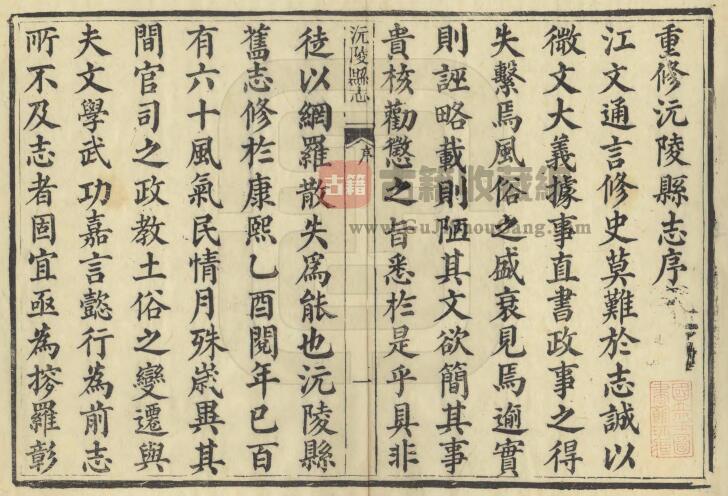 重修沅陵縣志序
江文通言修史莫難於志誠以
微文大義據事直書政事之得
失繫焉風俗之盛衰見焉逾實
則誣略載則陋其文欲簡其事
貴核勸懲之旨悉於是乎具非
沅陵縣志
序
一
徒以網羅散失爲能也沅陵縣
舊志修於康熙乙酉閱年已百
有六十風氣民情月殊歲異其
間官司之政教土俗之變遷與
夫文學武功嘉言懿行為前志
所不及志者固宜亟為搜羅彰
古籍
古籍收藏網
www.GuJiShouCang.com